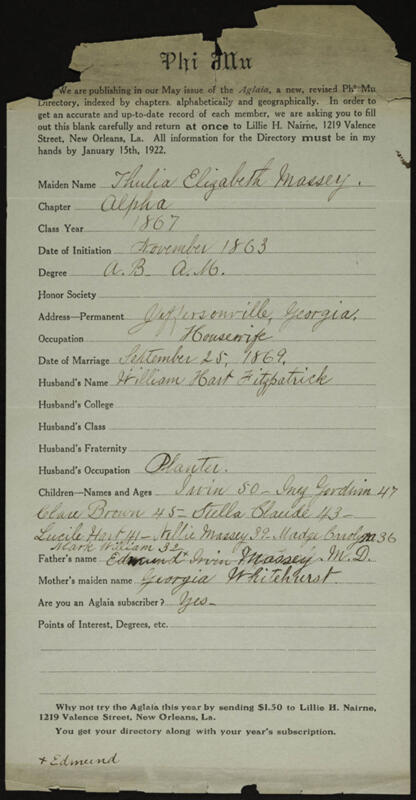 Phi Mu
We are publishing in our May issue of the Aglaia, a new, revised Phi Mu
Directory, indexed by chapters, alphabetically and geographically. In order to
get an accurate and up-to-date record of each member, we are asking you to fill
out this blank carefully and return at once to Lillie H. Nairne, 1219 Valence
Street, New Orleans, La. All information for the Directory must be in my
hands by January 15th, 1922.
Maiden Name Thulia Elizabeth Massey.
Chapter Alpha
Class Year 1867
Date of Initiation November 1863
Degree A.B. A.M.
Honor Society
Address—Permanent Jeffersonville, Georgia.
Occupation Housewife
Date of Marriage September 25, 1869.
Husband's Name William Hart Fitzpatrick
Husband's College
Husband's Class
Husband's Fraternity
Husband's Occupation Planter.
Children—Names and Ages Irvin 50 – Inez Goodwin 47
Clare Brown 45 – Stella Claude 43 –
Lucile Hart 41 – Nellie Massey 39. Madge Carolyn 36
Mark William 32
Father's name Edmund + Irvin Massey M.D.
Mother's maiden name Georgia Whitehurst.
Are you an Aglaia subscriber? Yes –
Points of Interest, Degrees, etc.
Why not try the Aglaia this year by sending $1.50 to Lillie H. Nairne,
1219 Valence Street, New Orleans, La.
You get your directory along with your year's subscription.
+ Edmund